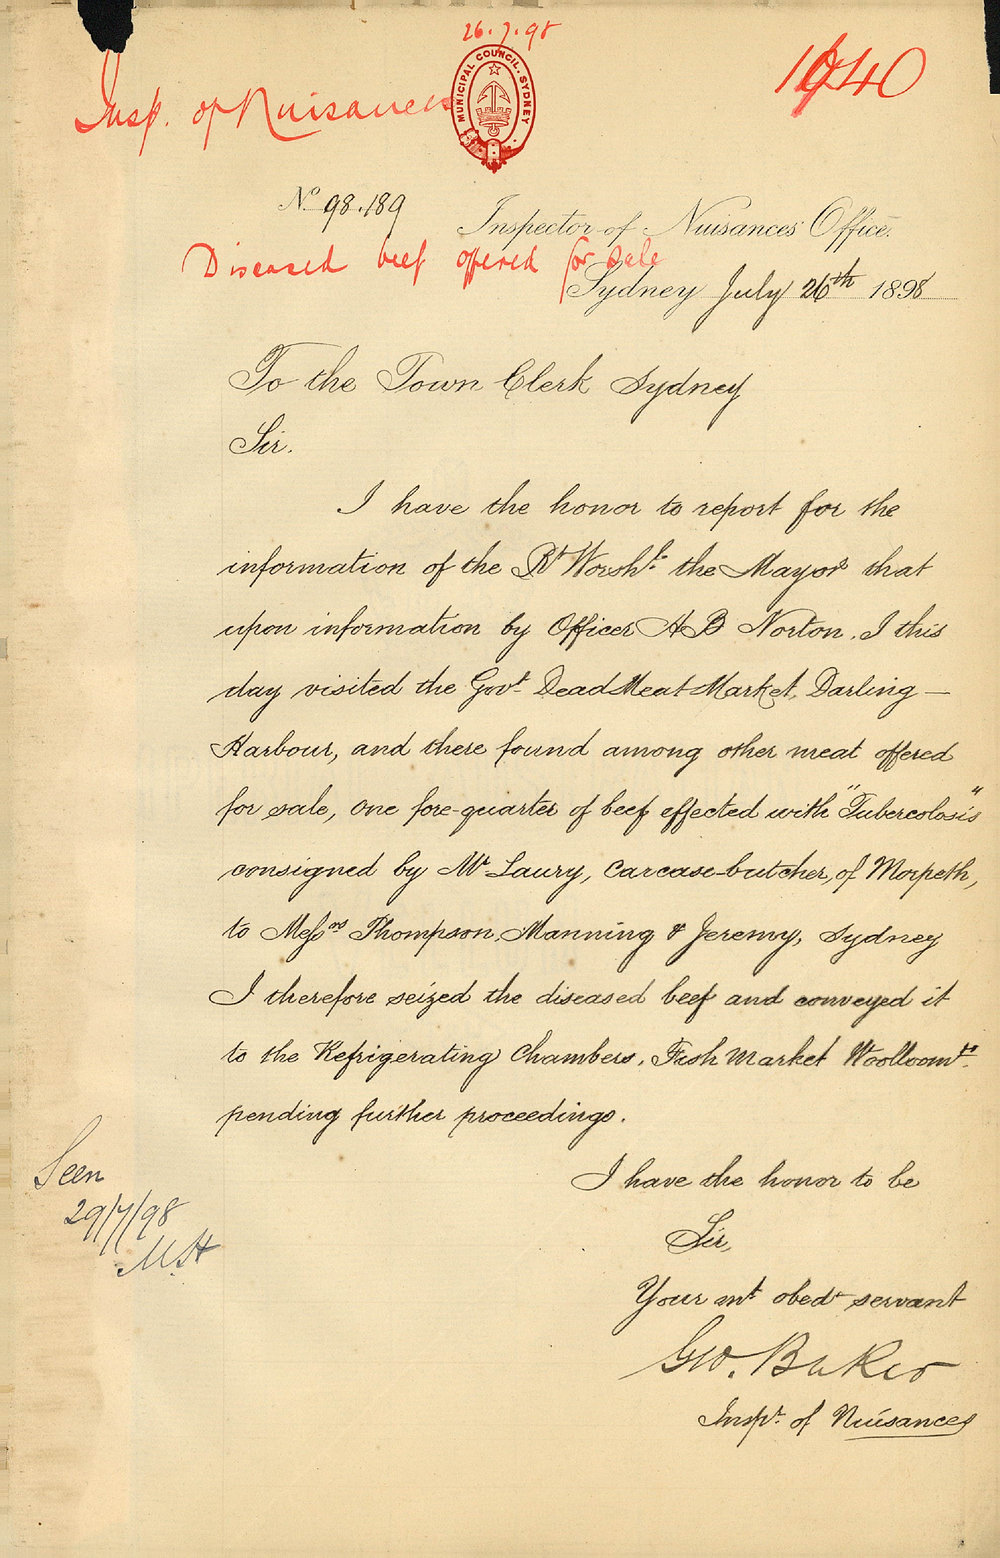 26.7.98
Insp. of Nuisances
MUNICIPAL COUNCIL. SYDNEY
1940
No 98.189
Inspector of Nuisances Office.
Diseased beef offered for sale
Sydney July 26th 1898
To the Town Clerk Sydney
Sir.
I have the honor to report for the
information of the Rt Worshl. the Mayor that
upon information by Officer A B Norton. I this
day visited the Govt. Dead Meat Market, Darling –
Harbour, and there found among other meat offered
for sale, one fore-quarter of beef effected with "Tubercolosis"
consigned by Mr Laury, Carcase-butcher, of Morpeth,
to Messrs Thompson, Manning & Jeremy, Sydney
I therefore seized the diseased beef and conveyed it
to the Refrigerating Chambers, Fish Market Woolloomo.
pending further proceedings.
I have the honor to be
Sir,
Your mt obedt servant
Geo. Baker
Inspt. of Nuisances
Seen
29/7/98
M.H